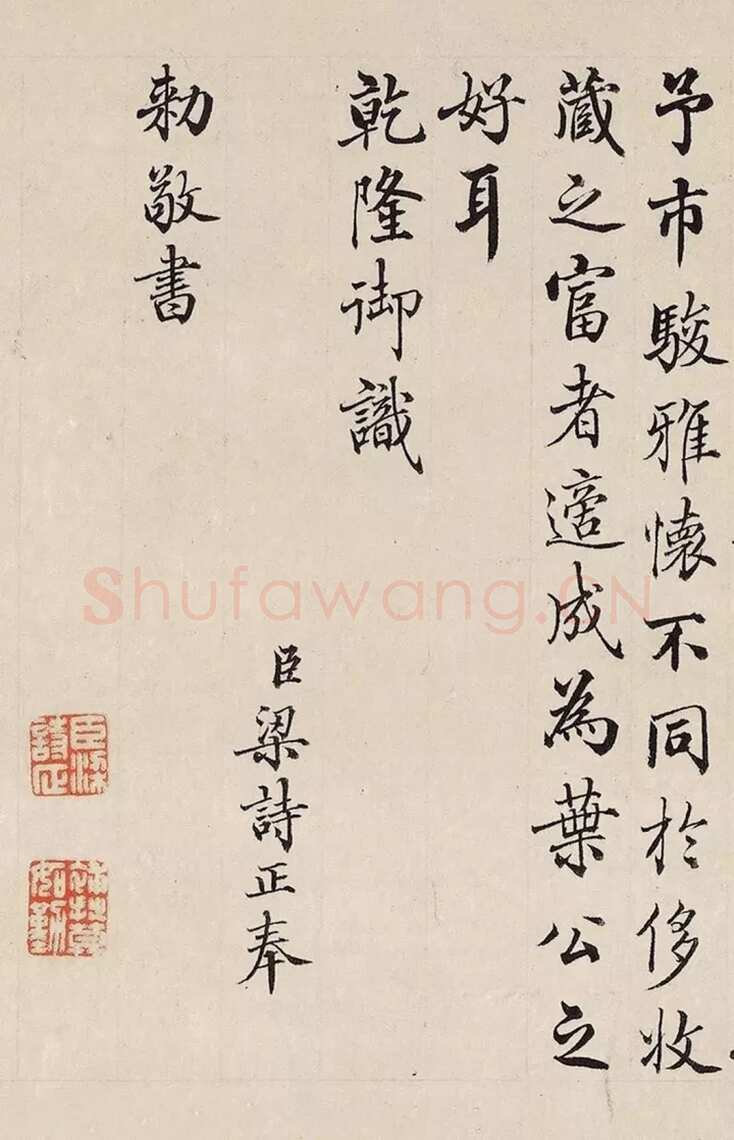 予市駿雅懷不同於侈收
藏之富者適成為葉公之
好耳
乾隆御識
臣梁詩正奉
勅敬書
臣梁詩正
Shufawang.CN